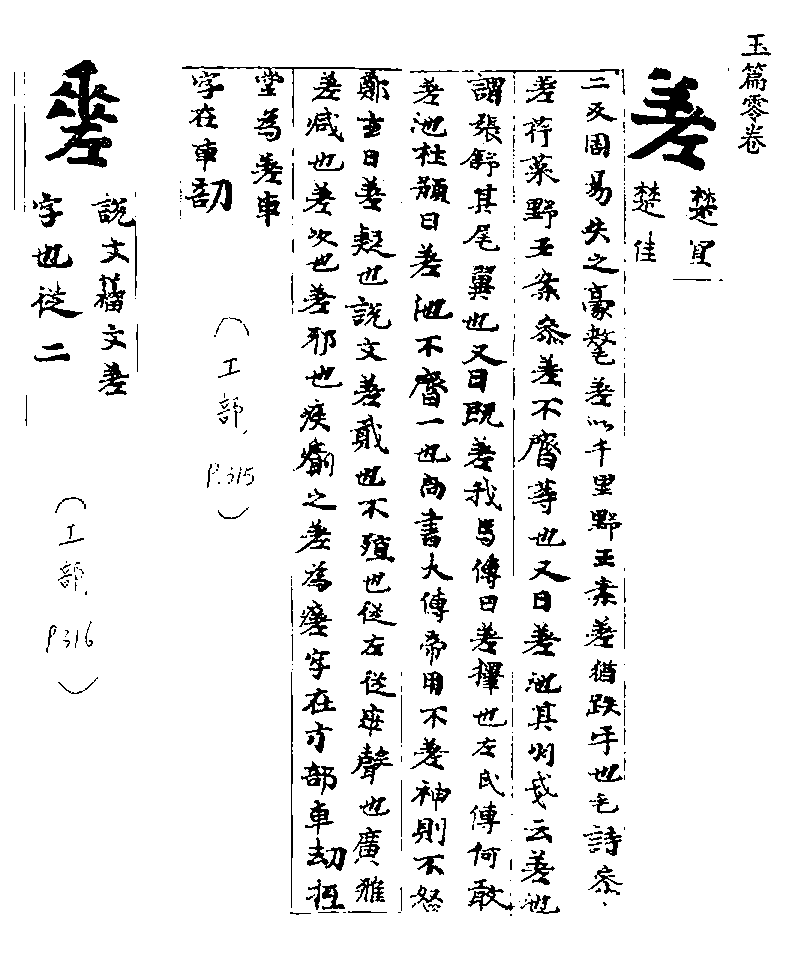 玉篇零卷
差
楚宜
楚佳
二反周易失之豪氂差以千里野王案差猶跌字也毛詩参〻
差荇菜野王案叅差不齊等也又曰差池其羽戔云差池
謂張舒其尾翼也又曰既差我馬傳曰差擇也左氏傳何敢
差池杜預曰差池不齊一也尚書大傳帝用不差神則不怒
鄭玄曰差疑也說文差貳也不殖也從左從𠂹聲也廣雅
差减也差次也差邪也疾瘉之差為瘥字在疒部車劫
堂為差車
字在車部
（工部，P.315）
𢀩
說文籕文差
字也従二
（工部，P.316）